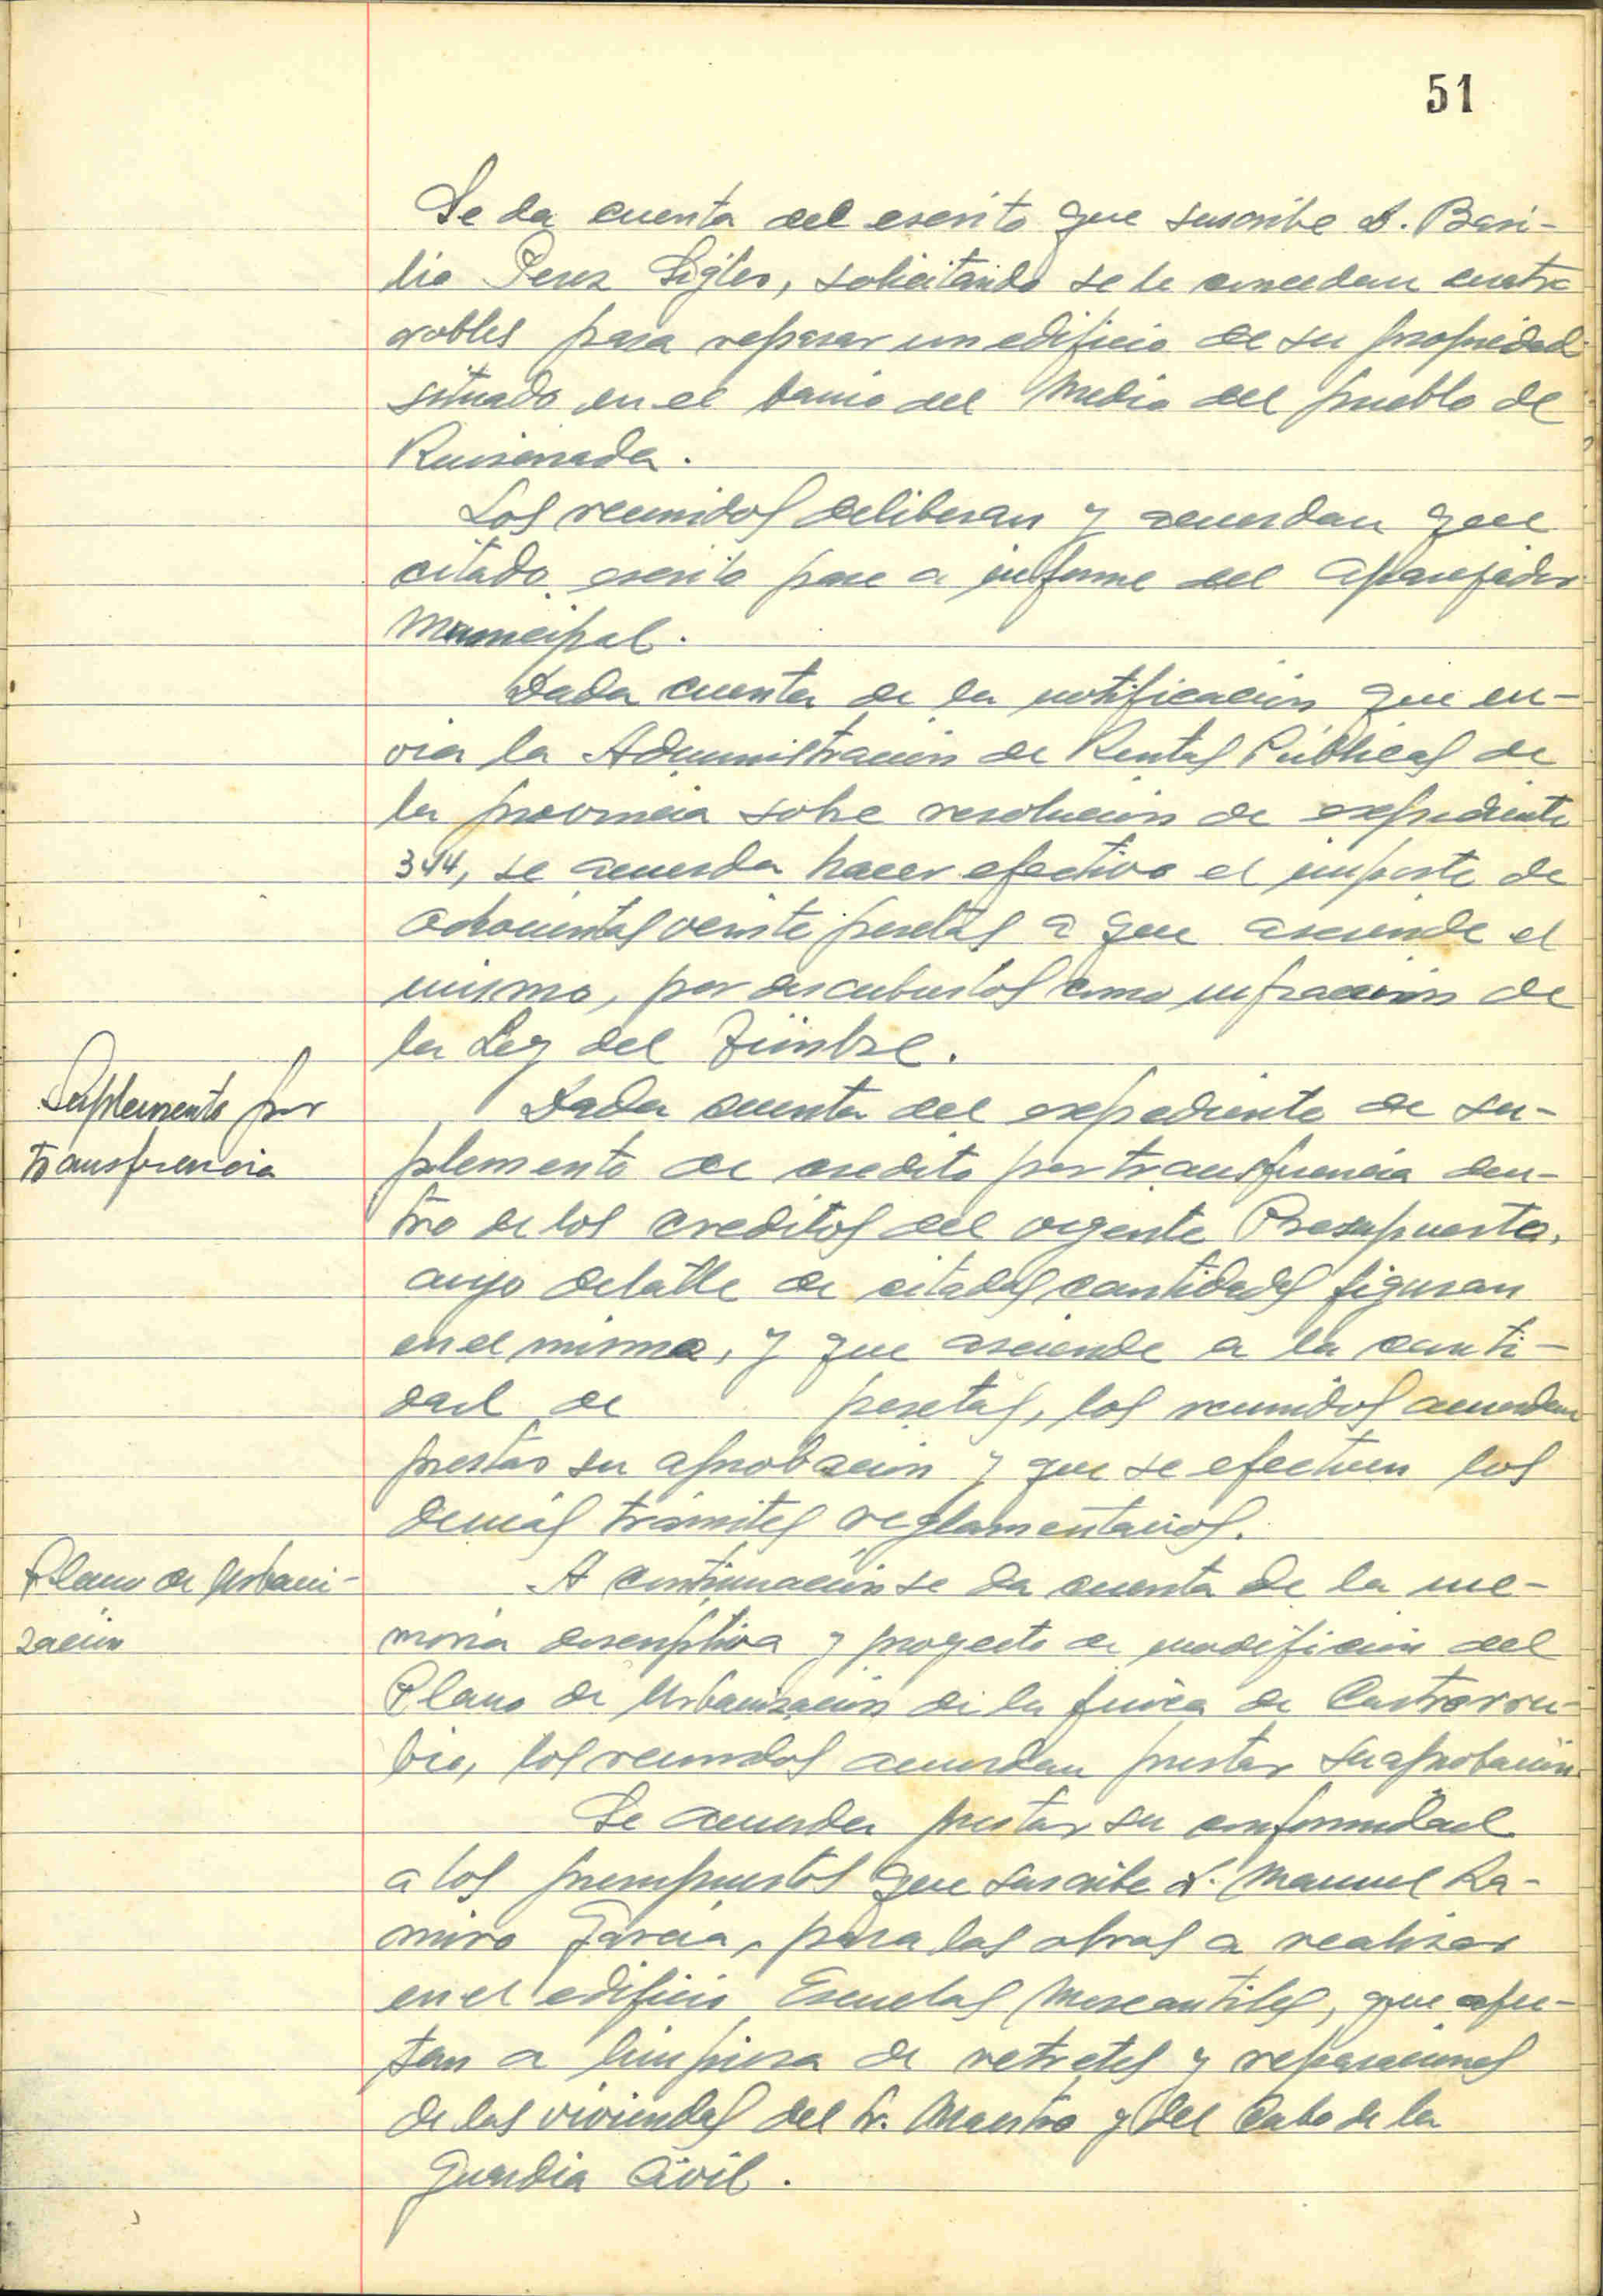 51
Se da cuenta del escrito que suscribe D. Basi-
lio Perez Sigles, solicitando se le concedan cuatro
robles para reparar un edificio de su propiedad
situado en el barrio del Medio del pueblo de
Ruiseñada.
Los reunidos deliberan y acuerdan que
citado escrito pase a informe del Aparejador
Municipal.
Dada cuenta de la notificación que en-
via la Administración de Rentas Públicas de
la provincia sobre resolución de expediente
344, se acuerda hacer efectivo el importe de
ochocientas veinte pesetas a que asciende el
mismo, por descubiertos como infracción de
la Ley del Timbre.
Suplemento por
transferencia
Dada cuenta del expediente de su-
plemento de credito por transferencia den-
tro de los creditos del vigente Presupuesto,
cuyo detalle de citadas cantidades figuran
en el mismo, y que asciende a la canti-
dad de pesetas, los reunidos acuerdan
prestar su aprobación y que se efectuen los
demás trámites reglamentarios.
Plano de Urbani-
zación
A continuación se da cuenta de la me-
moria descriptiva y proyecto de modifición del
Plano de Urbanización de la finca de Castrorru-
bio, los reunidos acuerdan prestar su aprobación.
Se acuerda prestar su conformidad
a los presupuestos que suscribe D. Manuel Ra-
miro García, para las obras a realizar
en el edificio Escuelas Mercantiles, que afec-
tan a limpieza de retretes y reparaciones
de las viviendas del Sr. Maestro y del Cabo de la
Guardia Civil.